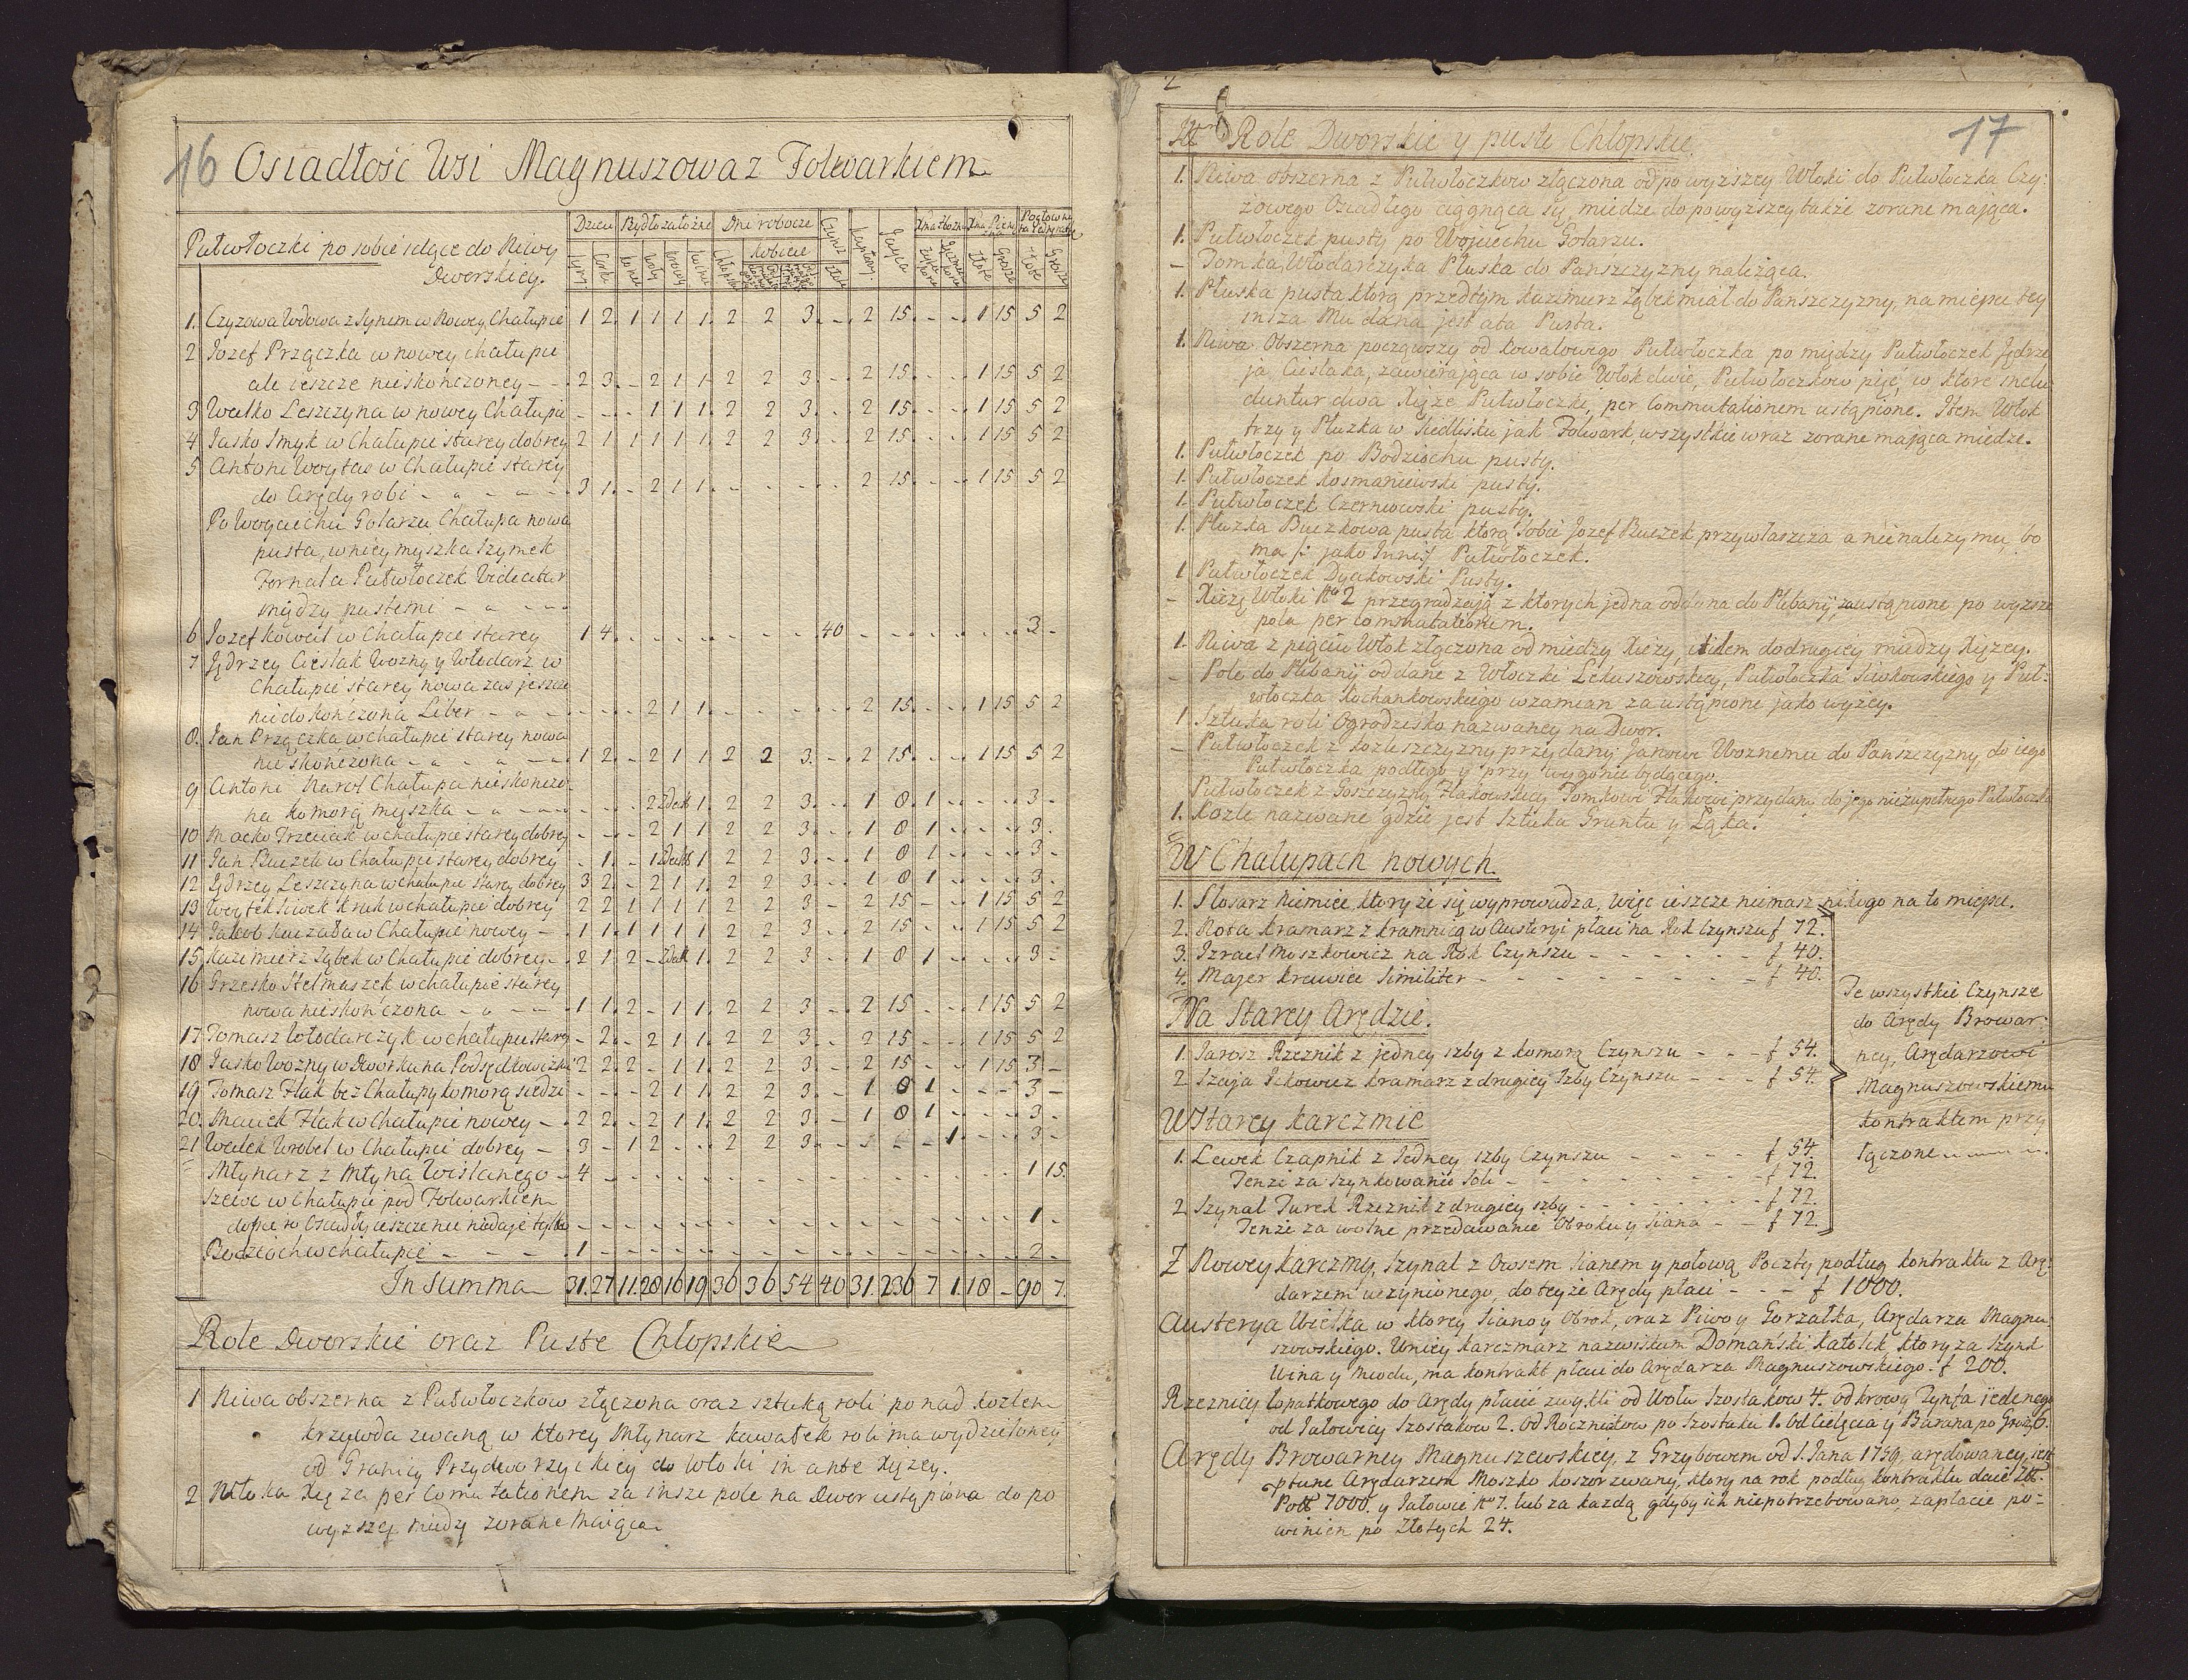 16 Osiadłość Wsi Magnuszowa z Folwarkiem
Pułwłoczki po sobie idące do Niwy
Dworskiey.
Dzieci Bydło załóżne Dni robocze Czynsz Kapłony Jayca
kobiece
Synow Corki konie Woły krowy Chłopskie złote
złote Grosze złote Grosze
1. Czyzowa Wdowa z Synem w Nowey Chałupie 1 2. 1 1 1 1. 2 2 3. - . 2 15. - - 1 15 5 2
2 Jozef Prządzka w nowey chałupie
ale ieszcze nieskończoney - - 2 3. - 2 1 1. 2 2 3. - . 2 15. - - 1 15 5 2
3 Walko Leszczyna w nowey Chałupie - - . - 1 1 1. 2 2 3. - . 2 15. - - 1 15 5 2
4 Jasko Smyk w Chałupie starey dobrey 2 1 1 1 1 1. 2 2 3. - . 2 15. - - 1 15 5 2
5 Antoni Woytas w Chałupie starey
do Arędy robi - - - - 3 1. - 2 1 1. - - - - . 2 15. - - 1 15 5 2
Po Woyciechu Golarzu Chałupa nowa
pusta, w niey myszka Szymek
Fornal a Pułwłoczek Videatur
między pustemi - - -
6 Jozef kowal w Chałupie starey 1 4. - - - - - - - 40 - - - - - - 3 -
7 Jędrzey Cieslak Wozny y Włodarz w
Chałupie starey nowa zas jeszcze
niedokończona Liber - - - - - - 2 1 1. - - - - . 2 15. - - 1 15 5 2
8. Jan Prządzka w chałupie starey nowa
nieskończona - - - 1 2. - 2 1 1. 2 2 3. - . 2 15. - - 1 15 5 2
9 Antoni Karol Chałupa nieskończo
na komorą myszka - - - - - - 2 1. 2 2 3. - . 1 8 1 - - - 3 -
10 Macko Trzeciak w chałupie starey dobrey - - - 2 1 1. 2 2 3. - . 1 8 1 - - - 3 -
11 Jan Buczek w Chałupie starey dobrey - 1. - 1 1. 2 2 3. - . 1 8 1 - - - 3 -
12 Jędrzey Leszczyna w chałupie starey dobrey 3 2. - 2 1 1. 2 2 3. - . 1 8 1 - - - 3 -
13 Woytek Siwek kruk w chałupie dobrey 2 2 1 1 1 1. 2 2 3. - 2 15 - - 1 15 5 2
14 Jakob Kuczaba w Chałupie nowey - 1 1. 1 1 1 1. 2 2 3. - 2 15. - - 1 15 5 2
15 Kazimierz Ząbek w Chałupie dobrey - 2 1. 2 - 1. 2 2 3. - 1 8 1 - - - 3 -
16 Grzesko Stelmaszek w chałupie starey
nowa nieskończona - - - 1 1. 2 - 1 1. 2 2 3. - . 2 15. - - 1 15 5 2
17 Tomasz Włodarczyk w chałupie starey - 2. - 2 1 1. 2 2 3. - . 2 15. - - 1 15 5 2
18 Jasko Wozny w Dworku na Podsędkowizni 2 2. 2 - 1 1. 2 2 3. - . 2 15. - - 1 15 3 -
19 Tomasz Flak bez Chałupy komorą siedzi - - - 2 1 1. 2 2 3. - 1 8 1 - - - 3 -
20. Maciek Flak w Chałupie nowey - 2 2. - 2 1 1. 2 2 3. - 1 8 1 - - - 3 -
21 Walek Wrobel w Chałupie dobrey - 3 - 1 2 - - 2 2 3. - - 1 - - - 3 -
Młynarz z Młyna Wislanego - 4 - - - - - - - - - - - - - - 1 15.
Szewc w Chałupie pod Folwarkiem
dopiero Osiadły ieszcze nic niedaje tylko - - - - - - - - - - - - - - - 1 -
Bodzioch w chałupie - - - 1 - - - - - - - - - - - - - - 2 -
In Summa 31. 27 11. 28 16 19 36 36 54 40 31. 236 7 1. 18 - 90 7.
Role Dworskie oraz Puste Chłopskie
1 Niwa obszerna z Pułwłoczkow złączona oraz sztuką roli ponad kozlem
krzywda zwaną w ktorey Młynarz kawałek roli ma wydzieloney
od Granicy Przydworzyckiey do włoki in ante Xiężey.
2 Włoka Xięża per Comutationem za insze pole na Dwor ustąpiona do po
wyzszey miedzy zorane maiąca
2
17
Role Dworskie y puste Chłopskie
1. Niwa obszerna z Pułwłoczkow złączona od powyższey Włoki do Pułwłoczka Czy:
zowego Osiadłego ciągnąca się, miedze do powyższey także zorane mająca.
1. Pułwłoczek pusty po Woyciechu Golarzu.
- Tomka Włodarczyka Płuska do Pańszczyzny należąca.
1. Płuska pusta ktorą przedtym Kazimierz Ząbek miał do Pańszczyzny, na miejsce tey
insza Mu dana jest a ta Pusta.
1. Niwa Obszerna począwszy od Kowalowego Pułwłoczka po między Pułwłoczek Jędrze
ja Cieslaka, zawierająca w sobie Włok dwie, Pułwłoczkow pięć, w ktore inclu
duntur dwa Xięże Pułwłoczki, per Commutationem ustąpione. Item Włok
trzy y Płuzka w Siedlisku jak Folwark, wszystkie wraz zorane mająca miedze.
1. Pułwłoczek po Bodziochu pusty.
1. Pułwłoczek Kosmaniewski pusty.
1. Pułwłoczek Czerniowski pusty.
1. Płuzka Buczkowa pusta ktorą sobie Jozef Buczek przywłaszcza a nienależy mu, bo
ma jako Inni Pułwłoczek.
1 Pułwłoczek Dyakowski Pusty.
- Xiężę Włoki No 2 przegradzają z ktorych jedna oddana do Plebanij za ustąpione po wyższe
pola per commutationem.
1. Niwa z pięciu Włok złączona od miedzy Xięży, idem do drugiey miedzy Xiężey.
- Pole do Plebanij oddane z Włoczki Lekuszowskiey, Pułwłoczka Siwkowskiego y Puł-
włoczka Kochankowskiego wzamian za ustąpione jako wyżey.
1 Sztuka roli Ogrodzisko nazwaney na Dwor.
- Pułwłoczek z Kozleszczyzny przydany Janowi Woznemu do Pańszczyzny do iego
Pułwłoczka podłego y przy wygonie będącego.
Pułwłoczek z Goszczyzny Flakowskiey Tomkowi Flakowi przydany do jego niezupełnego Pułwłoczka
1. Kozle nazwane gdzie jest Sztuka Gruntu y Łąka.
W Chałupach nowych.
1. Slosarz Niemiec, ktory że się wyprowadza, więc ieszcze niemasz nikogo na to miejsce.
2. Rosa Kramarz z kramnicą w Austeryi płaci na Rok Czynszu f 72.
3. Izrael Moszkowicz na Rok Czynszu - - - - f 40.
4. Majer Krawiec Similiter - - - - f 40.
Na Starey Arędzie.
1. Jarosz Rzeznik z jedney izby z komorą Czynszu - - - f 54.
2 Szaja Ickowicz Kramarz z drugiey Izby Czynszu - - - f 54.
W Starey karczmie
1. Lewek Czapnik z Jedney izby Czynszu - - - - f 54.
Tenże za szynkowanie Soli - - - - f 72.
2 Szynal Turek Rzeznik z drugiey izby - - - - f 72.
Tenże za wolne przedawanie Obroku y Siana - - f 72.
Te wszystkie Czynsze
do Arędy Browar:
ney, Arędarzowi
Magnuszowskiemu
kontraktem przy
łączone
Z Nowey karczmy, Szynal z Owsem Sianem y połową Poczty podług kontraktu z Arę:
darzem uczynionego, do teyże Arędy płaci - - - f 1000.
Austerya Wielka w ktorey Siano y Obrok, oraz Piwo y Gorzałka, Arędarza Magnu
szowskiego. W niey karczmarz nazwiskiem Domański, katolik, ktory za szynk
Wina y Miodu, ma kontrakt płaci do Arędarza Magnuszowskiego. f 200.
Rzeznicy łopatkowego do Arędy płacić zwykli od Wołu Szostakow 4. od krowy Tynfa jednego
od Jałowicy Szostakow 2. od Rocznikow po Szostaku 1. Od Cielęcia y Barana po Groszy 6.
Arędy Browarney Magnuszewskiey, z Grzybowem od S. Jana 1759. arędowaney, jest
ptune Arędarzem Moszko Koszor zwany, ktory na rok podług kontraktu daie Złł.
Poll 7000. y Jałowic No 7. lub za każdą gdyby ich niepotrzebowano, zapłacić po-
winien po Złotych 24.